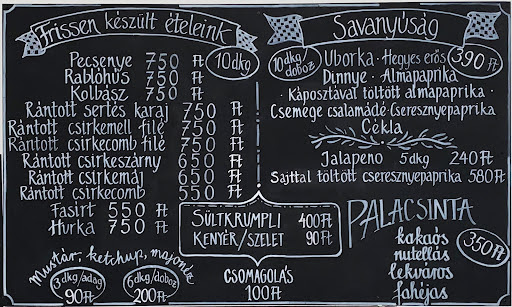 Frissen készült ételeink
10dkg
Pecsenye 750 Ft
Rablóhús 750 Ft
Kolbász 750 Ft
Rántott sertés karaj 750 Ft
Rántott csirkemell filé 750 Ft
Rántott csirkecomb filé 750 Ft
Rántott csirkeszárny 650 Ft
Rántott csirkemáj 650 Ft
Rántott csirkecomb 550 Ft
Fasírt 550 Ft
Hurka 750 Ft
Mustár, ketchup, majonéz
3dkg/adag
90Ft
6dkg/doboz
200Ft
SÜLTKRUMPLI 400Ft
KENYÉR/SZELET 90Ft
CSOMAGOLÁS
100Ft
Savanyúság
10dkg/doboz
Uborka · Hegyes erős
390Ft
Dinnye · Almapaprika
· Káposztával töltött almapaprika ·
Csemege csalamádé · Cseresznyepaprika
Cékla
Jalapeno 5dkg 240Ft
Sajttal töltött cseresznyepaprika 580Ft
PALACSINTA
kakaós
nutellás
lekváros
fahéjas
350Ft